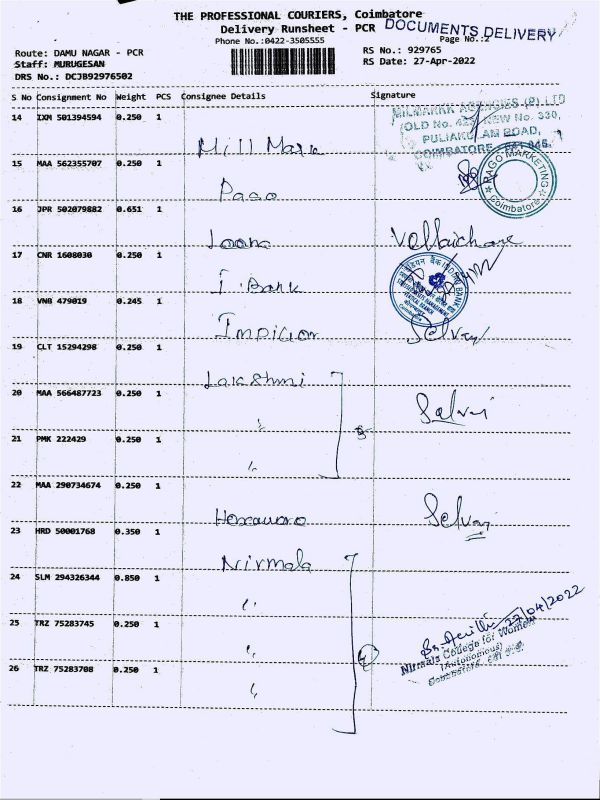 THE PROFESSIONAL COURIERS, Coimbatore
Delivery Runsheet - PCR
DOCUMENTS DELIVERY
Phone No.:0422-3505555
Page No.:2
Route: DAMU NAGAR - PCR
RS No.: 929765
Staff: MURUGESAN
RS Date: 27-Apr-2022
DRS No.: DCJB92976502
S No Consignment No Weight PCS Consignee Details Signature
14 IXM 501394594 0.250 1
MILMARKK AGENCIES (P) LTD
OLD No. 425, NEW No. 330,
PULIAKULAM ROAD,
COIMBATORE - 641 045.
Mill Mark
15 MAA 562355707 0.250 1
PAGO MARKETING
Coimbatore
Pago
16 JPR 502079882 0.651 1
Vellaichamy
17 CNR 1608030 0.250 1
INDIAN BANK
I. Bank
18 VNB 479019 0.245 1
Selvaj
19 CLT 15294298 0.250 1
Lakshmi
20 MAA 566487723 0.250 1
"
Selvaj
21 PMK 222429 0.250 1
"
22 MAA 290734674 0.250 1
Selvaj
23 HRD 50001768 0.350 1
Nirmala
24 SLM 294326344 0.850 1
"
27/04/2022
25 TRZ 75283745 0.250 1
Nirmala College for Women
(Autonomous)
"
Coimbatore - 641 018
26 TRZ 75283708 0.250 1
"